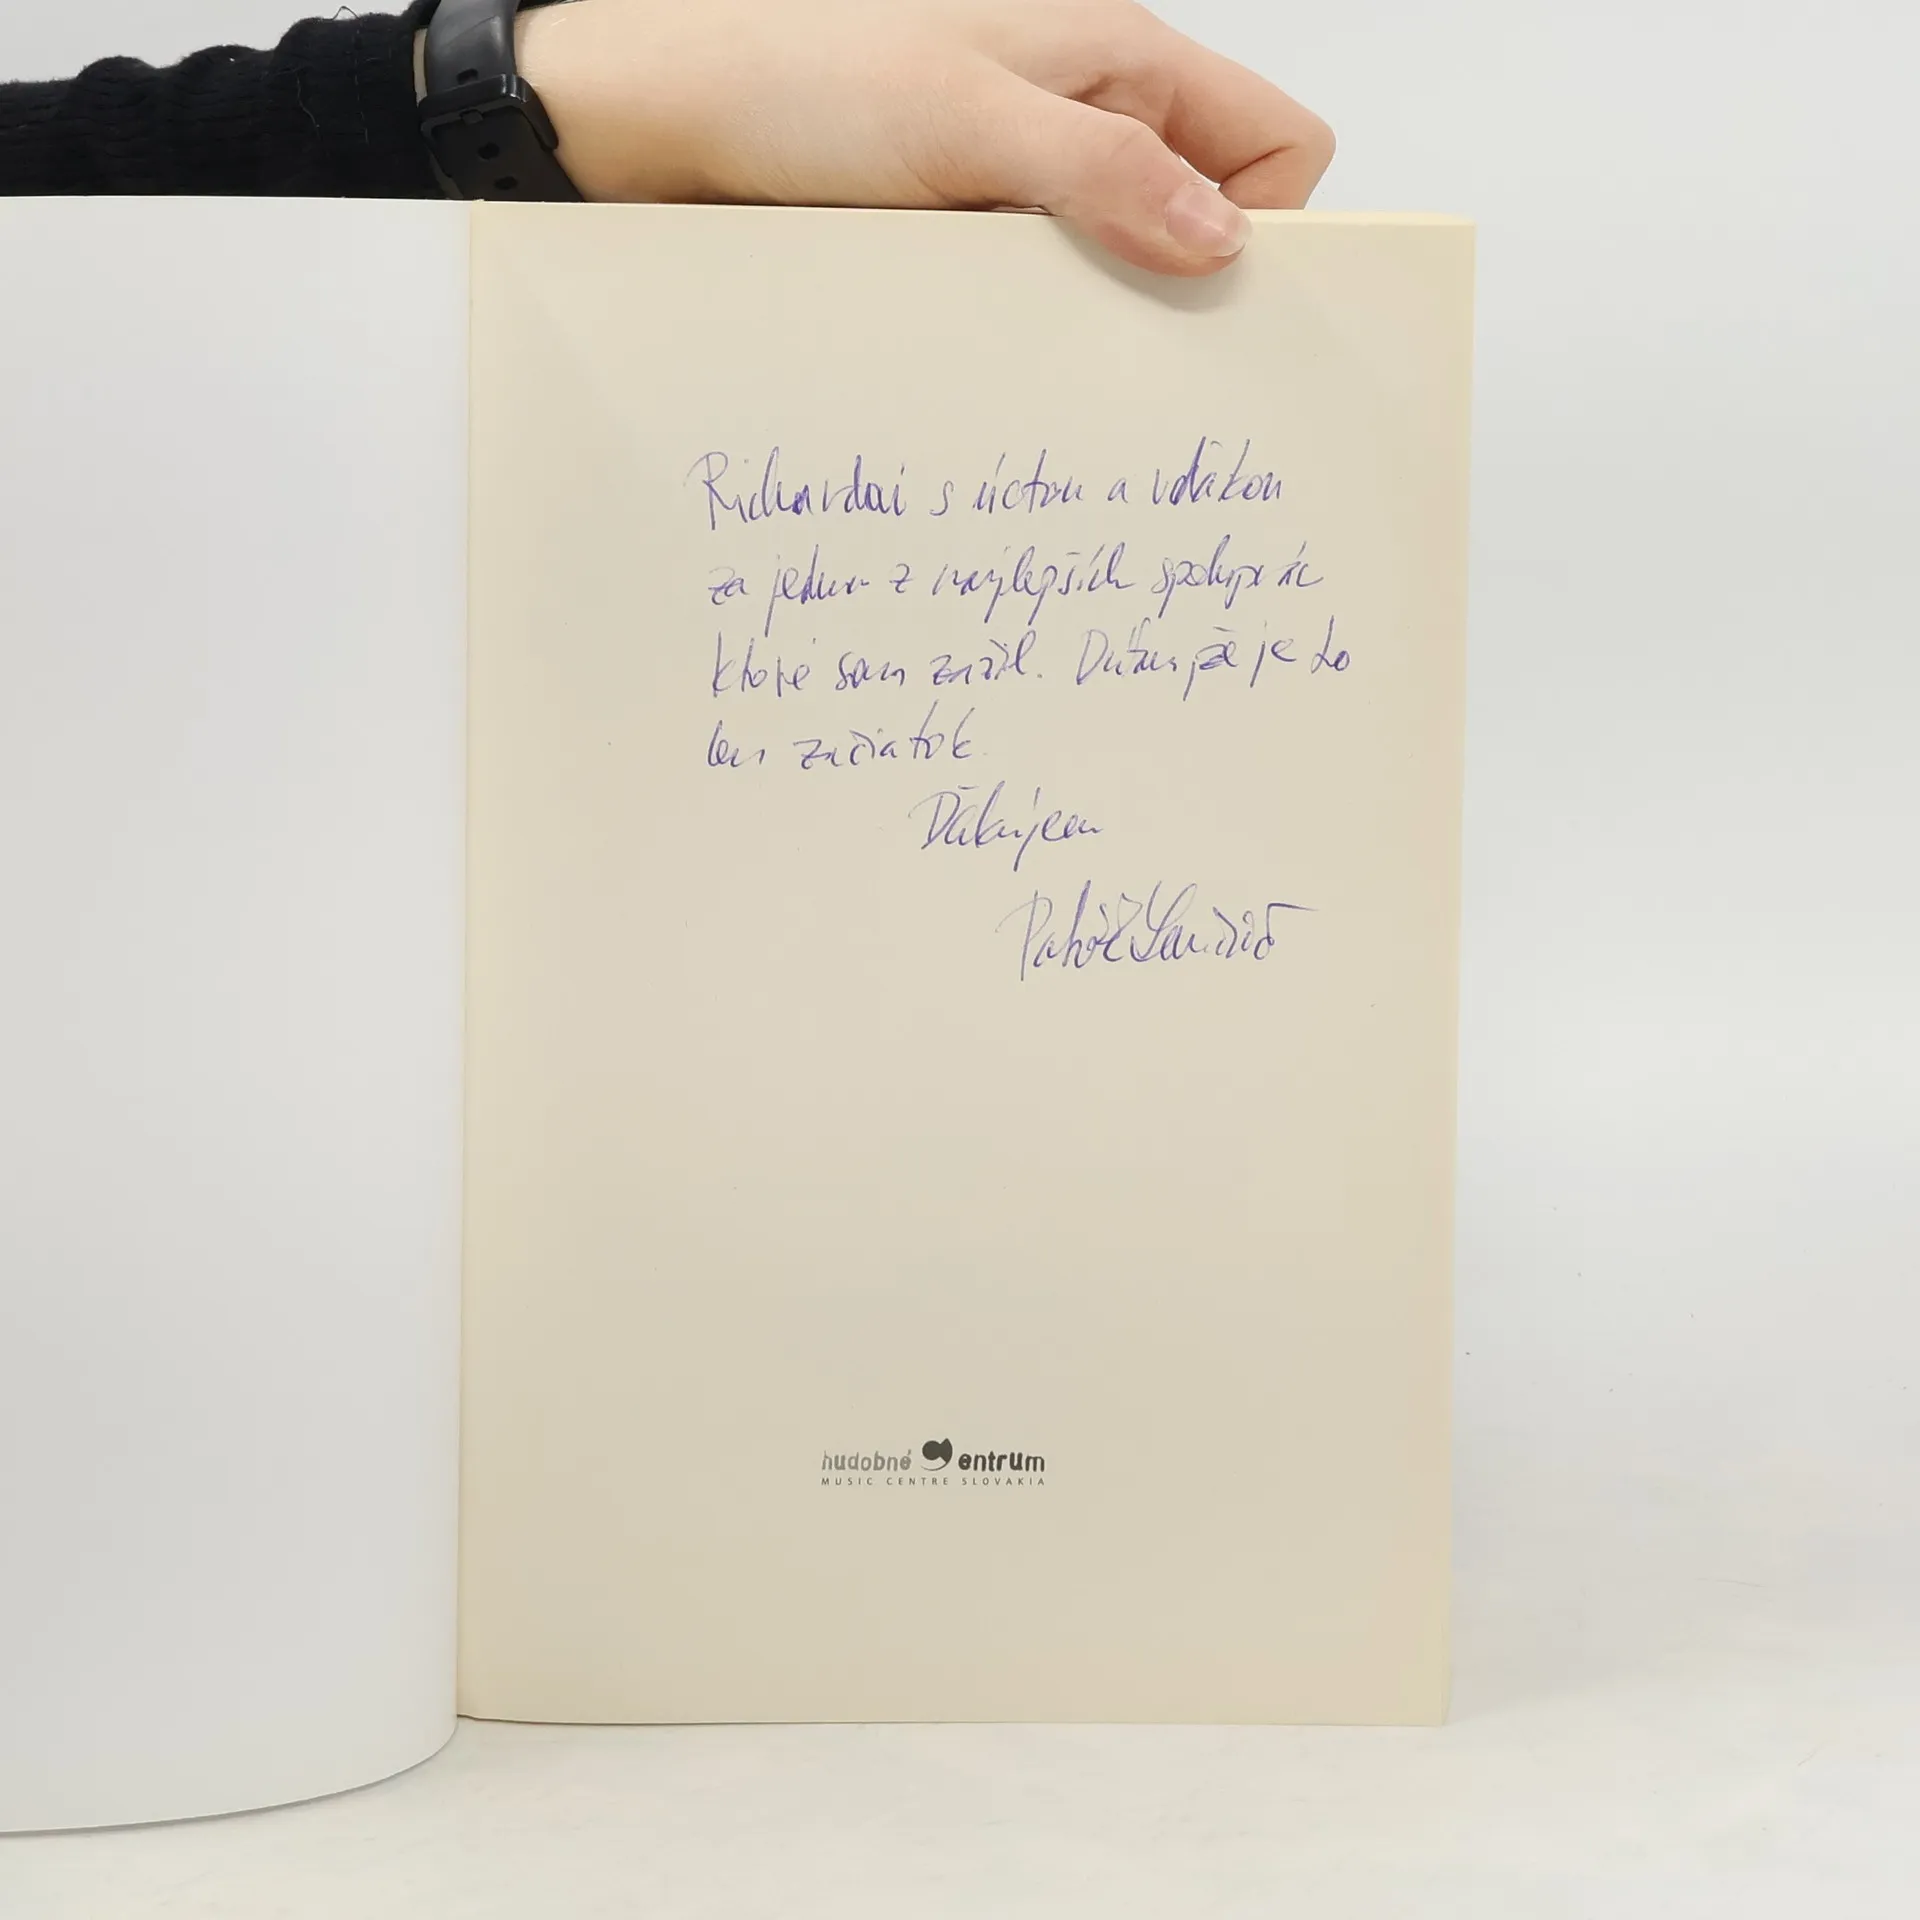 Richardovi s úctou a vďakou
za jednu z najlepších spoluprác
ktoré som zažil. Dúfam, že je to
len začiatok.
Ďakujem
hudobné centrum
MUSIC CENTRE SLOVAKIA